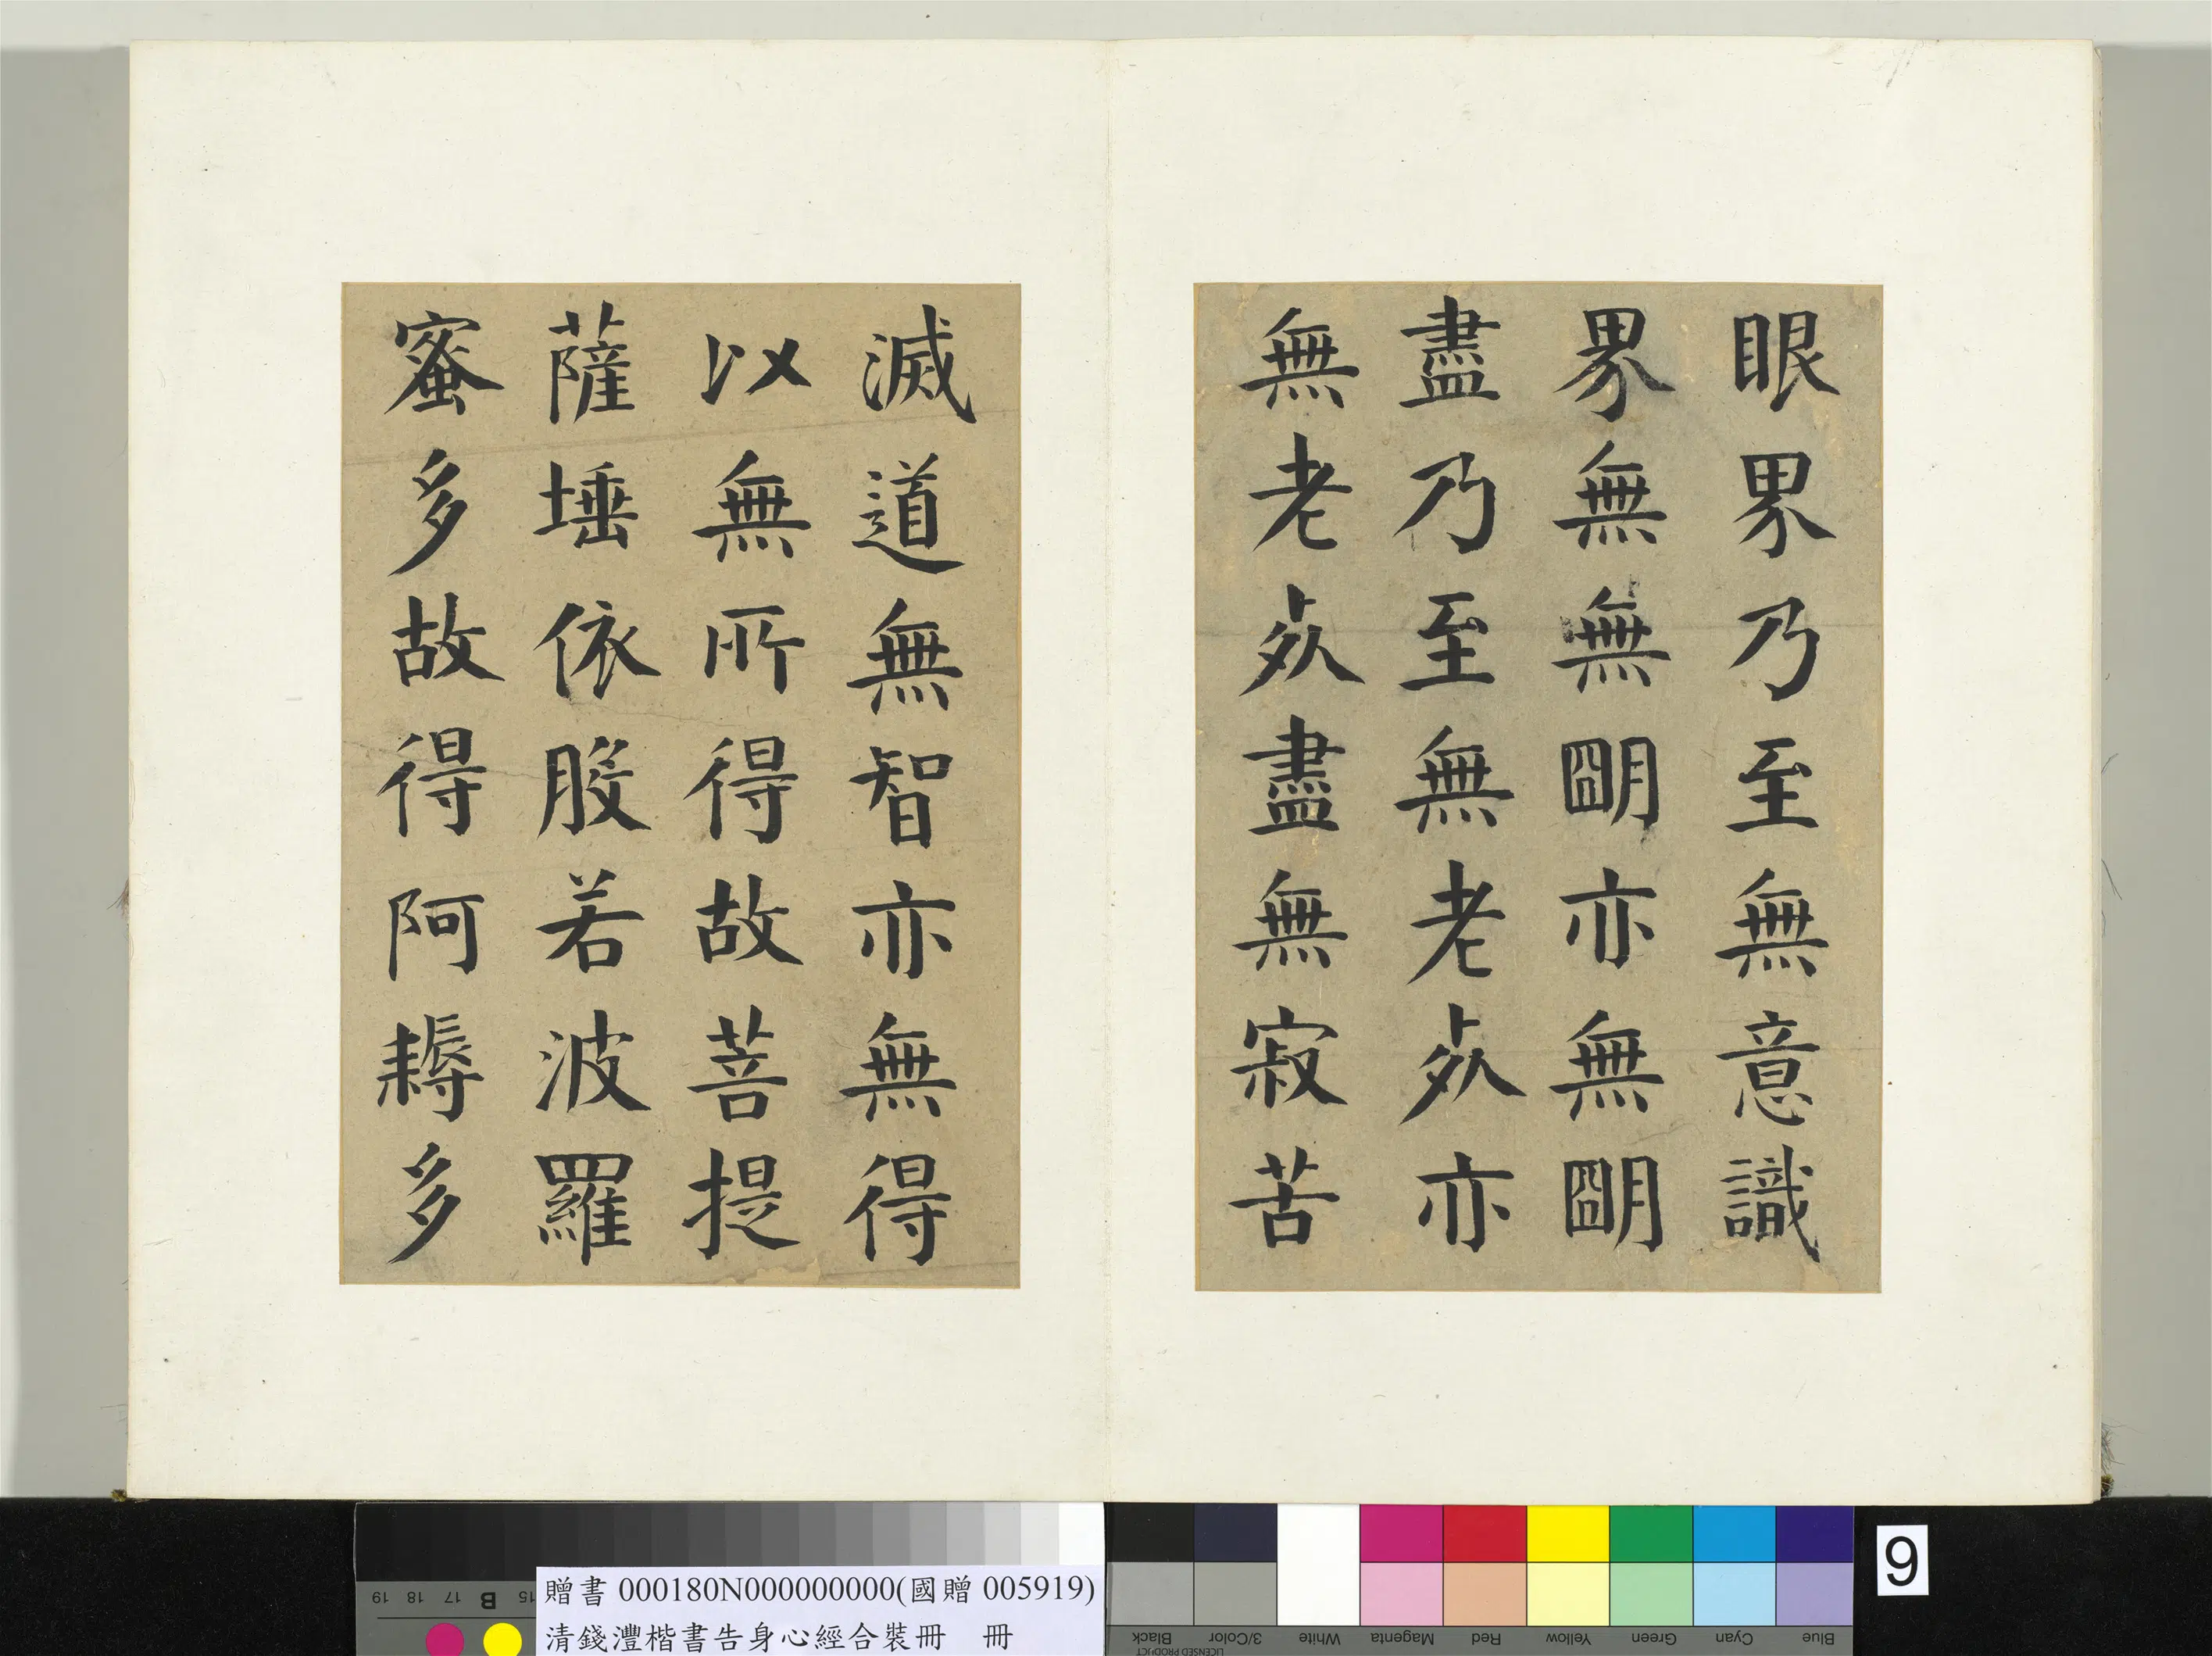 眼界乃至無意識
界無無朙亦無朙
盡乃至無老死亦
無老死盡無寂苦
滅道無智亦無得
以無所得故菩提
薩埵依般若波羅
蜜多故得阿耨多
贈書 000180N000000000(國贈 005919)
清錢灃楷書告身心經合裝冊 冊
9
Blue Cyan Green Yellow Red Magenta White 3/Color Black
LICENSED PRODUCT
15 B 17 18 19